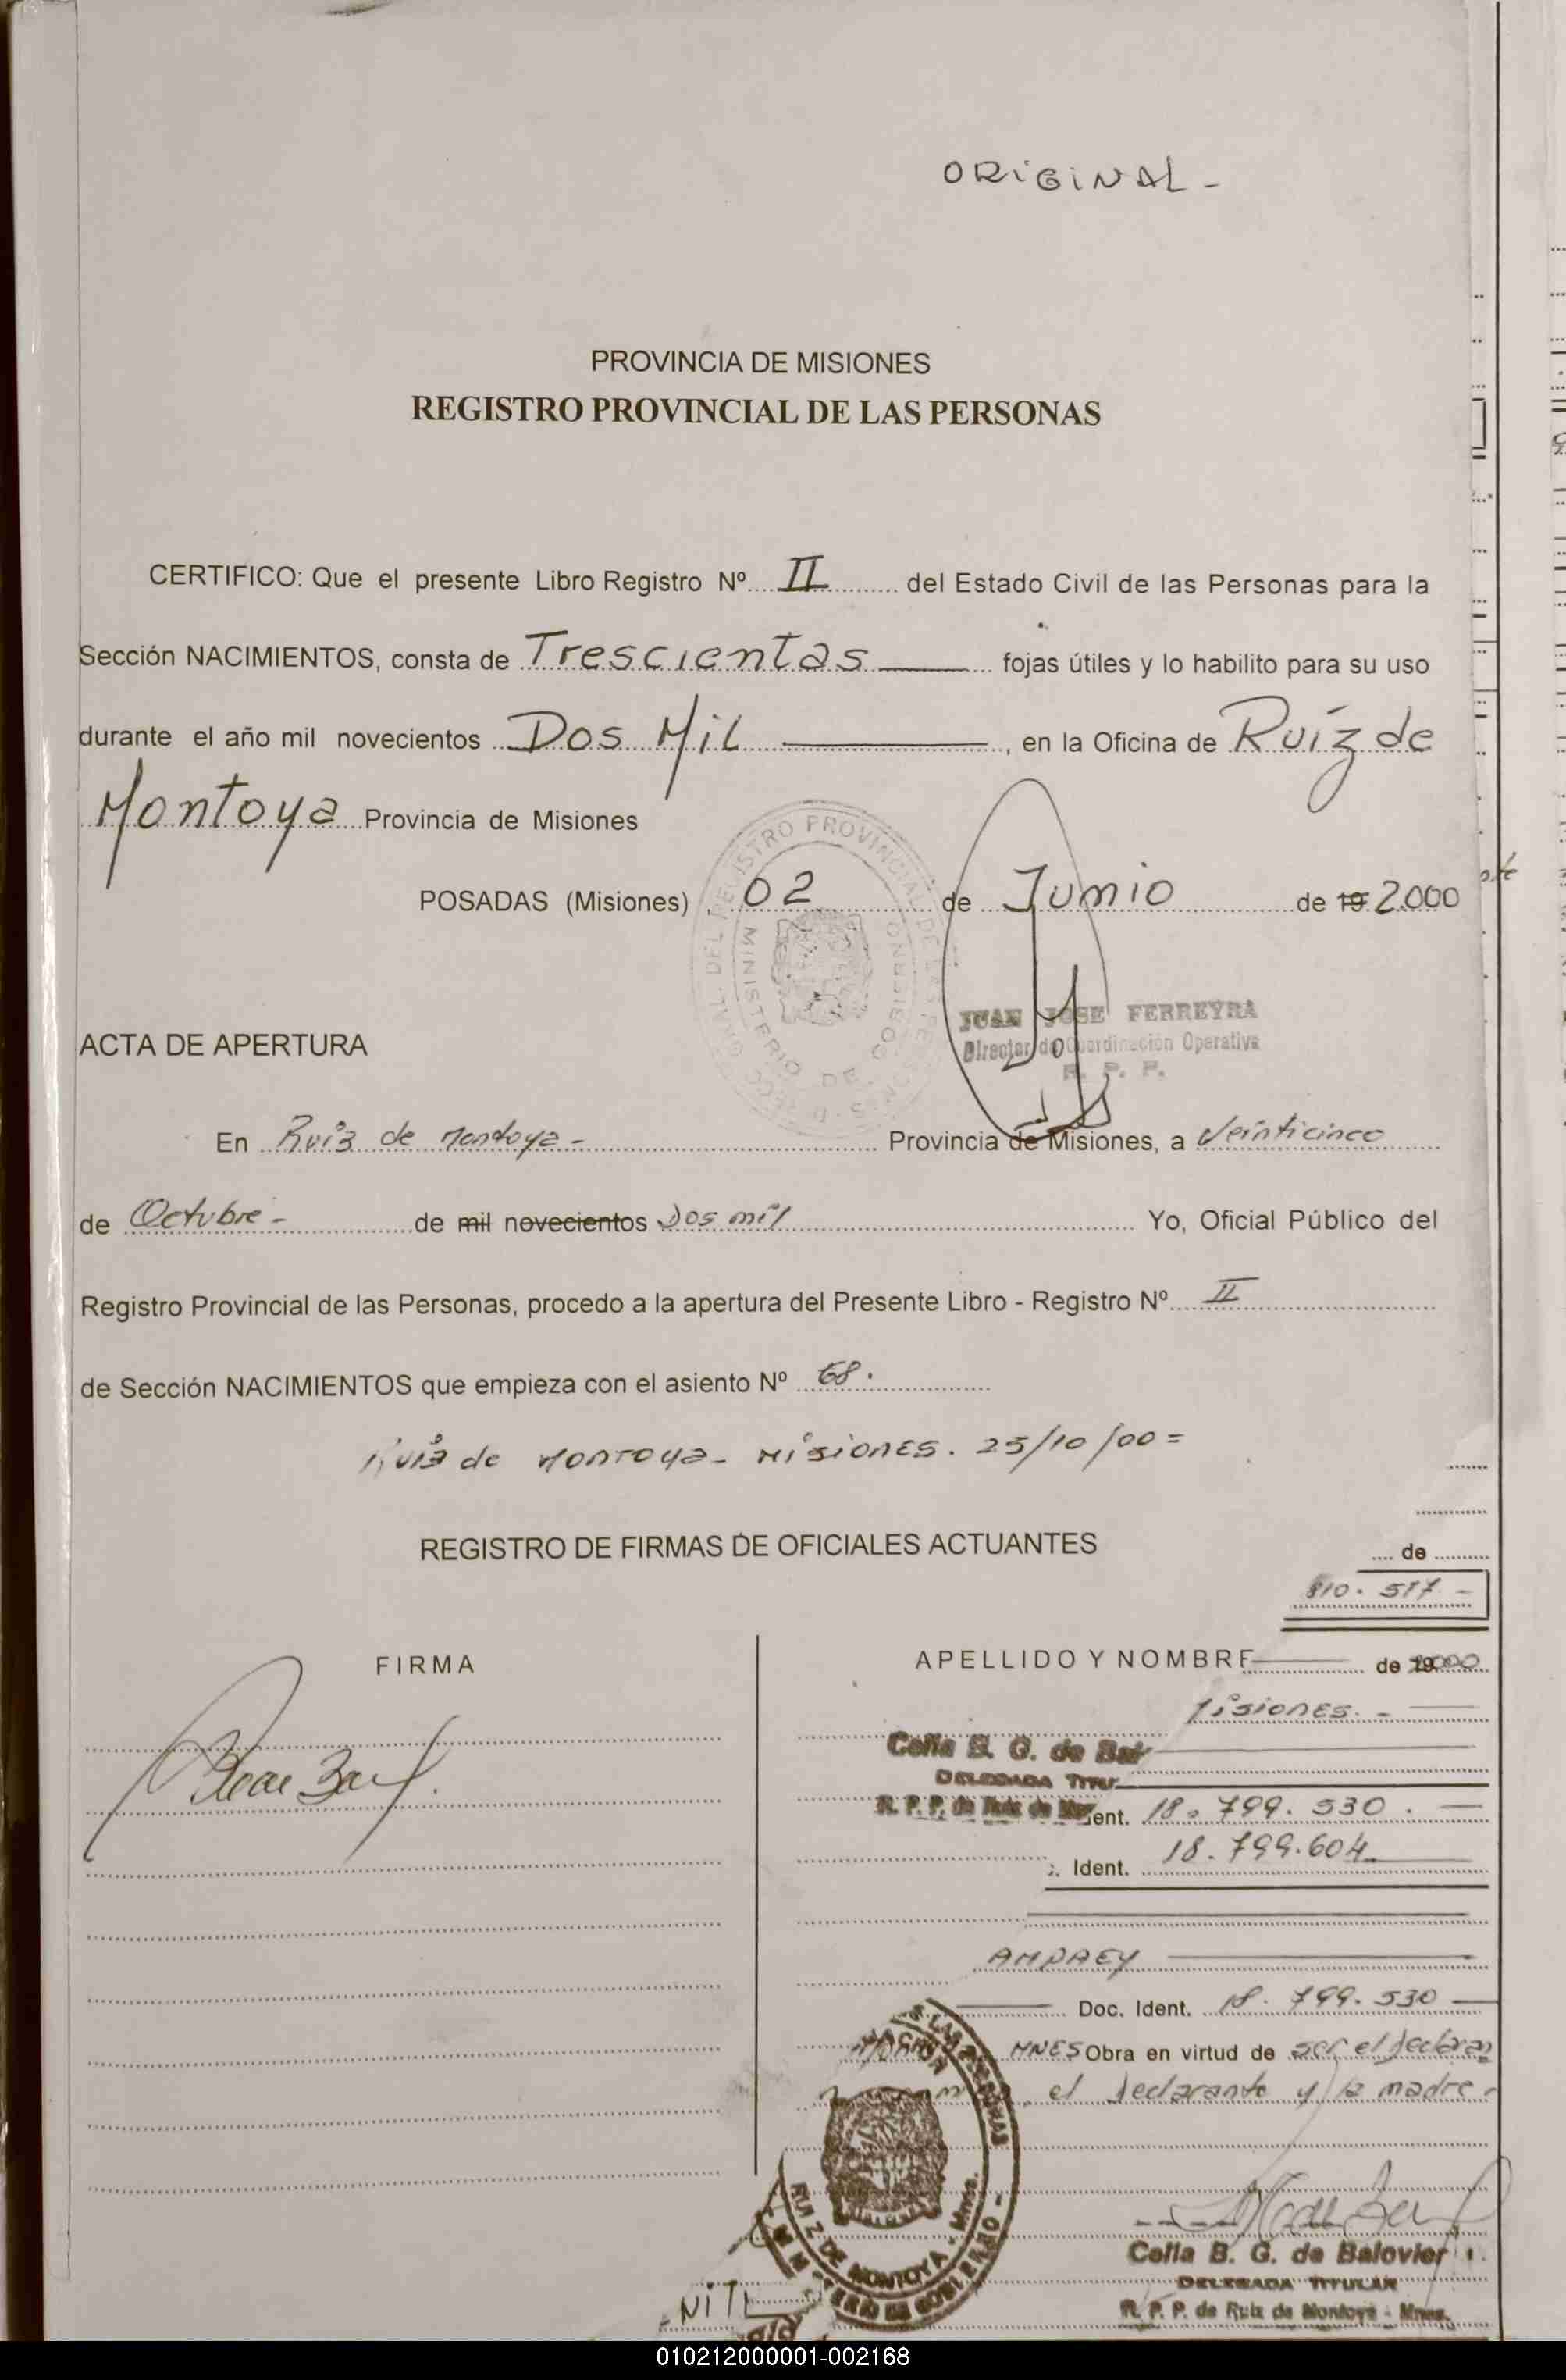 ORiGiNAL-
PROVINCIA DE MISIONES
REGISTRO PROVINCIAL DE LAS PERSONAS
CERTIFICO: Que el presente Libro Registro Nº II del Estado Civil de las Personas para la
Sección NACIMIENTOS, consta de Trescientas fojas útiles y lo habilito para su uso
durante el año mil novecientos Dos Mil, en la Oficina de Ruíz de
Montoya Provincia de Misiones
POSADAS (Misiones), 02 de Junio de 19 2000
JUAN JOSE FERREYRA
Director de Coordinación Operativa
R. P. P.
ACTA DE APERTURA
En Ruiz de Montoya - Provincia de Misiones, a Veinticinco
de Octubre - de mil novecientos Dos mil Yo, Oficial Público del
Registro Provincial de las Personas, procedo a la apertura del Presente Libro - Registro Nº II
de Sección NACIMIENTOS que empieza con el asiento Nº 68.
Ruiz de Montoya - Misiones. 25/10/00 =
REGISTRO DE FIRMAS DE OFICIALES ACTUANTES
de
810. 517 -
FIRMA
APELLIDO Y NOMBRE
de 19 2000
isiones. -
Celia B. G. de Bal
DELEGADA TITU
R. P. P. de Ruiz de Mon
ent. 18. 799. 530. -
Ident. 18. 799. 604
AMDAEY
Doc. Ident. 18. 799. 530
MNES Obra en virtud de ser el declaran
el declarante y la madre.
RUIZ DE MONTOYA - Mnes.
Celia B. G. de Balovier
DELEGADA TITULAR
R. P. P. de Ruiz de Montoya - Mnes.
010212000001-002168